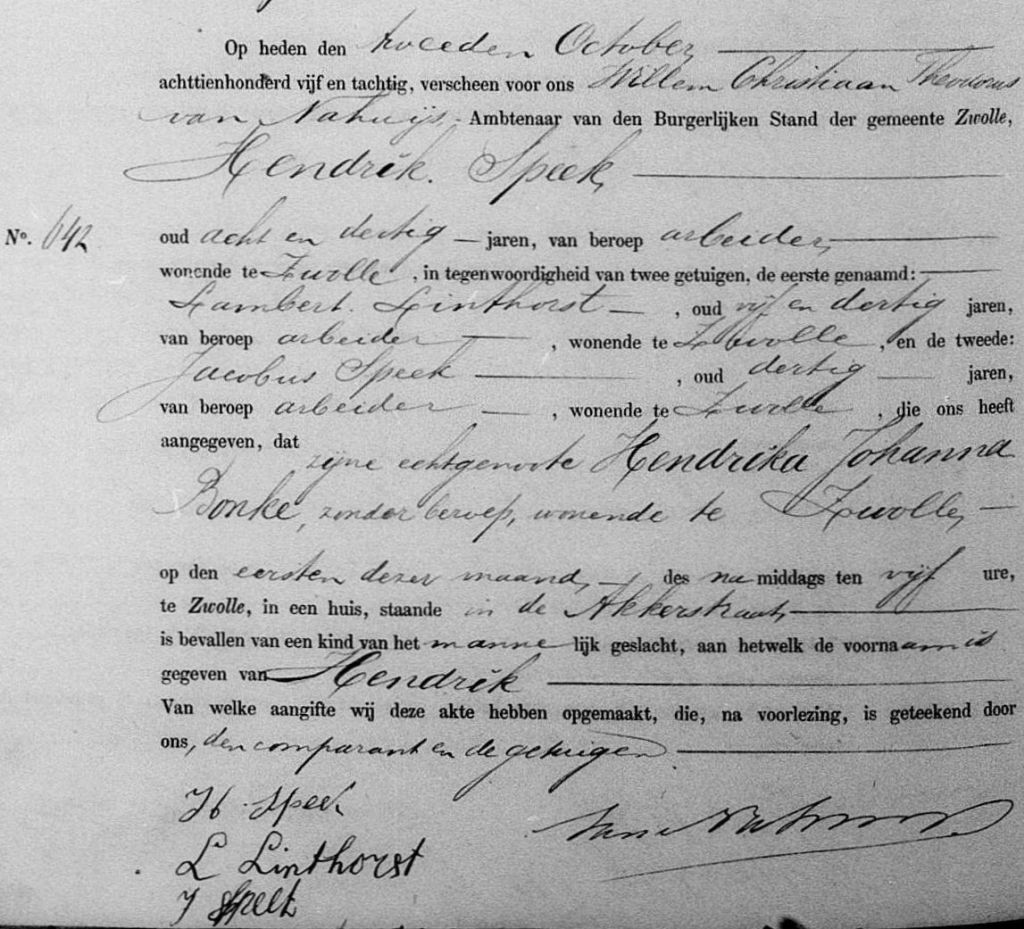 Op heden den tweeden October
achttienhonderd vijf en tachtig, verscheen voor ons Willem Christiaan Theodorus
van Nahuijs, Ambtenaar van den Burgerlijken Stand der gemeente Zwolle,
Hendrik Speek,
No. 642
oud acht en dertig jaren, van beroep arbeider,
wonende te Zwolle, in tegenwoordigheid van twee getuigen, de eerste genaamd:
Lambert Linthorst, oud vijf en dertig jaren,
van beroep arbeider, wonende te Zwolle, en de tweede:
Jacobus Speek, oud dertig jaren,
van beroep arbeider, wonende te Zwolle, die ons heeft
aangegeven, dat zijne echtgenoote Hendrika Johanna
Bonke, zonder beroep, wonende te Zwolle,
op den eersten dezer maand, des namiddags ten vijf ure,
te Zwolle, in een huis, staande in de Akkerstraat,
is bevallen van een kind van het mannelijk geslacht, aan hetwelk de voornaam is
gegeven van Hendrik
Van welke aangifte wij deze akte hebben opgemaakt, die, na voorlezing, is geteekend door
ons, den comparant en de getuigen.
H Speek
L Linthorst
J Speek